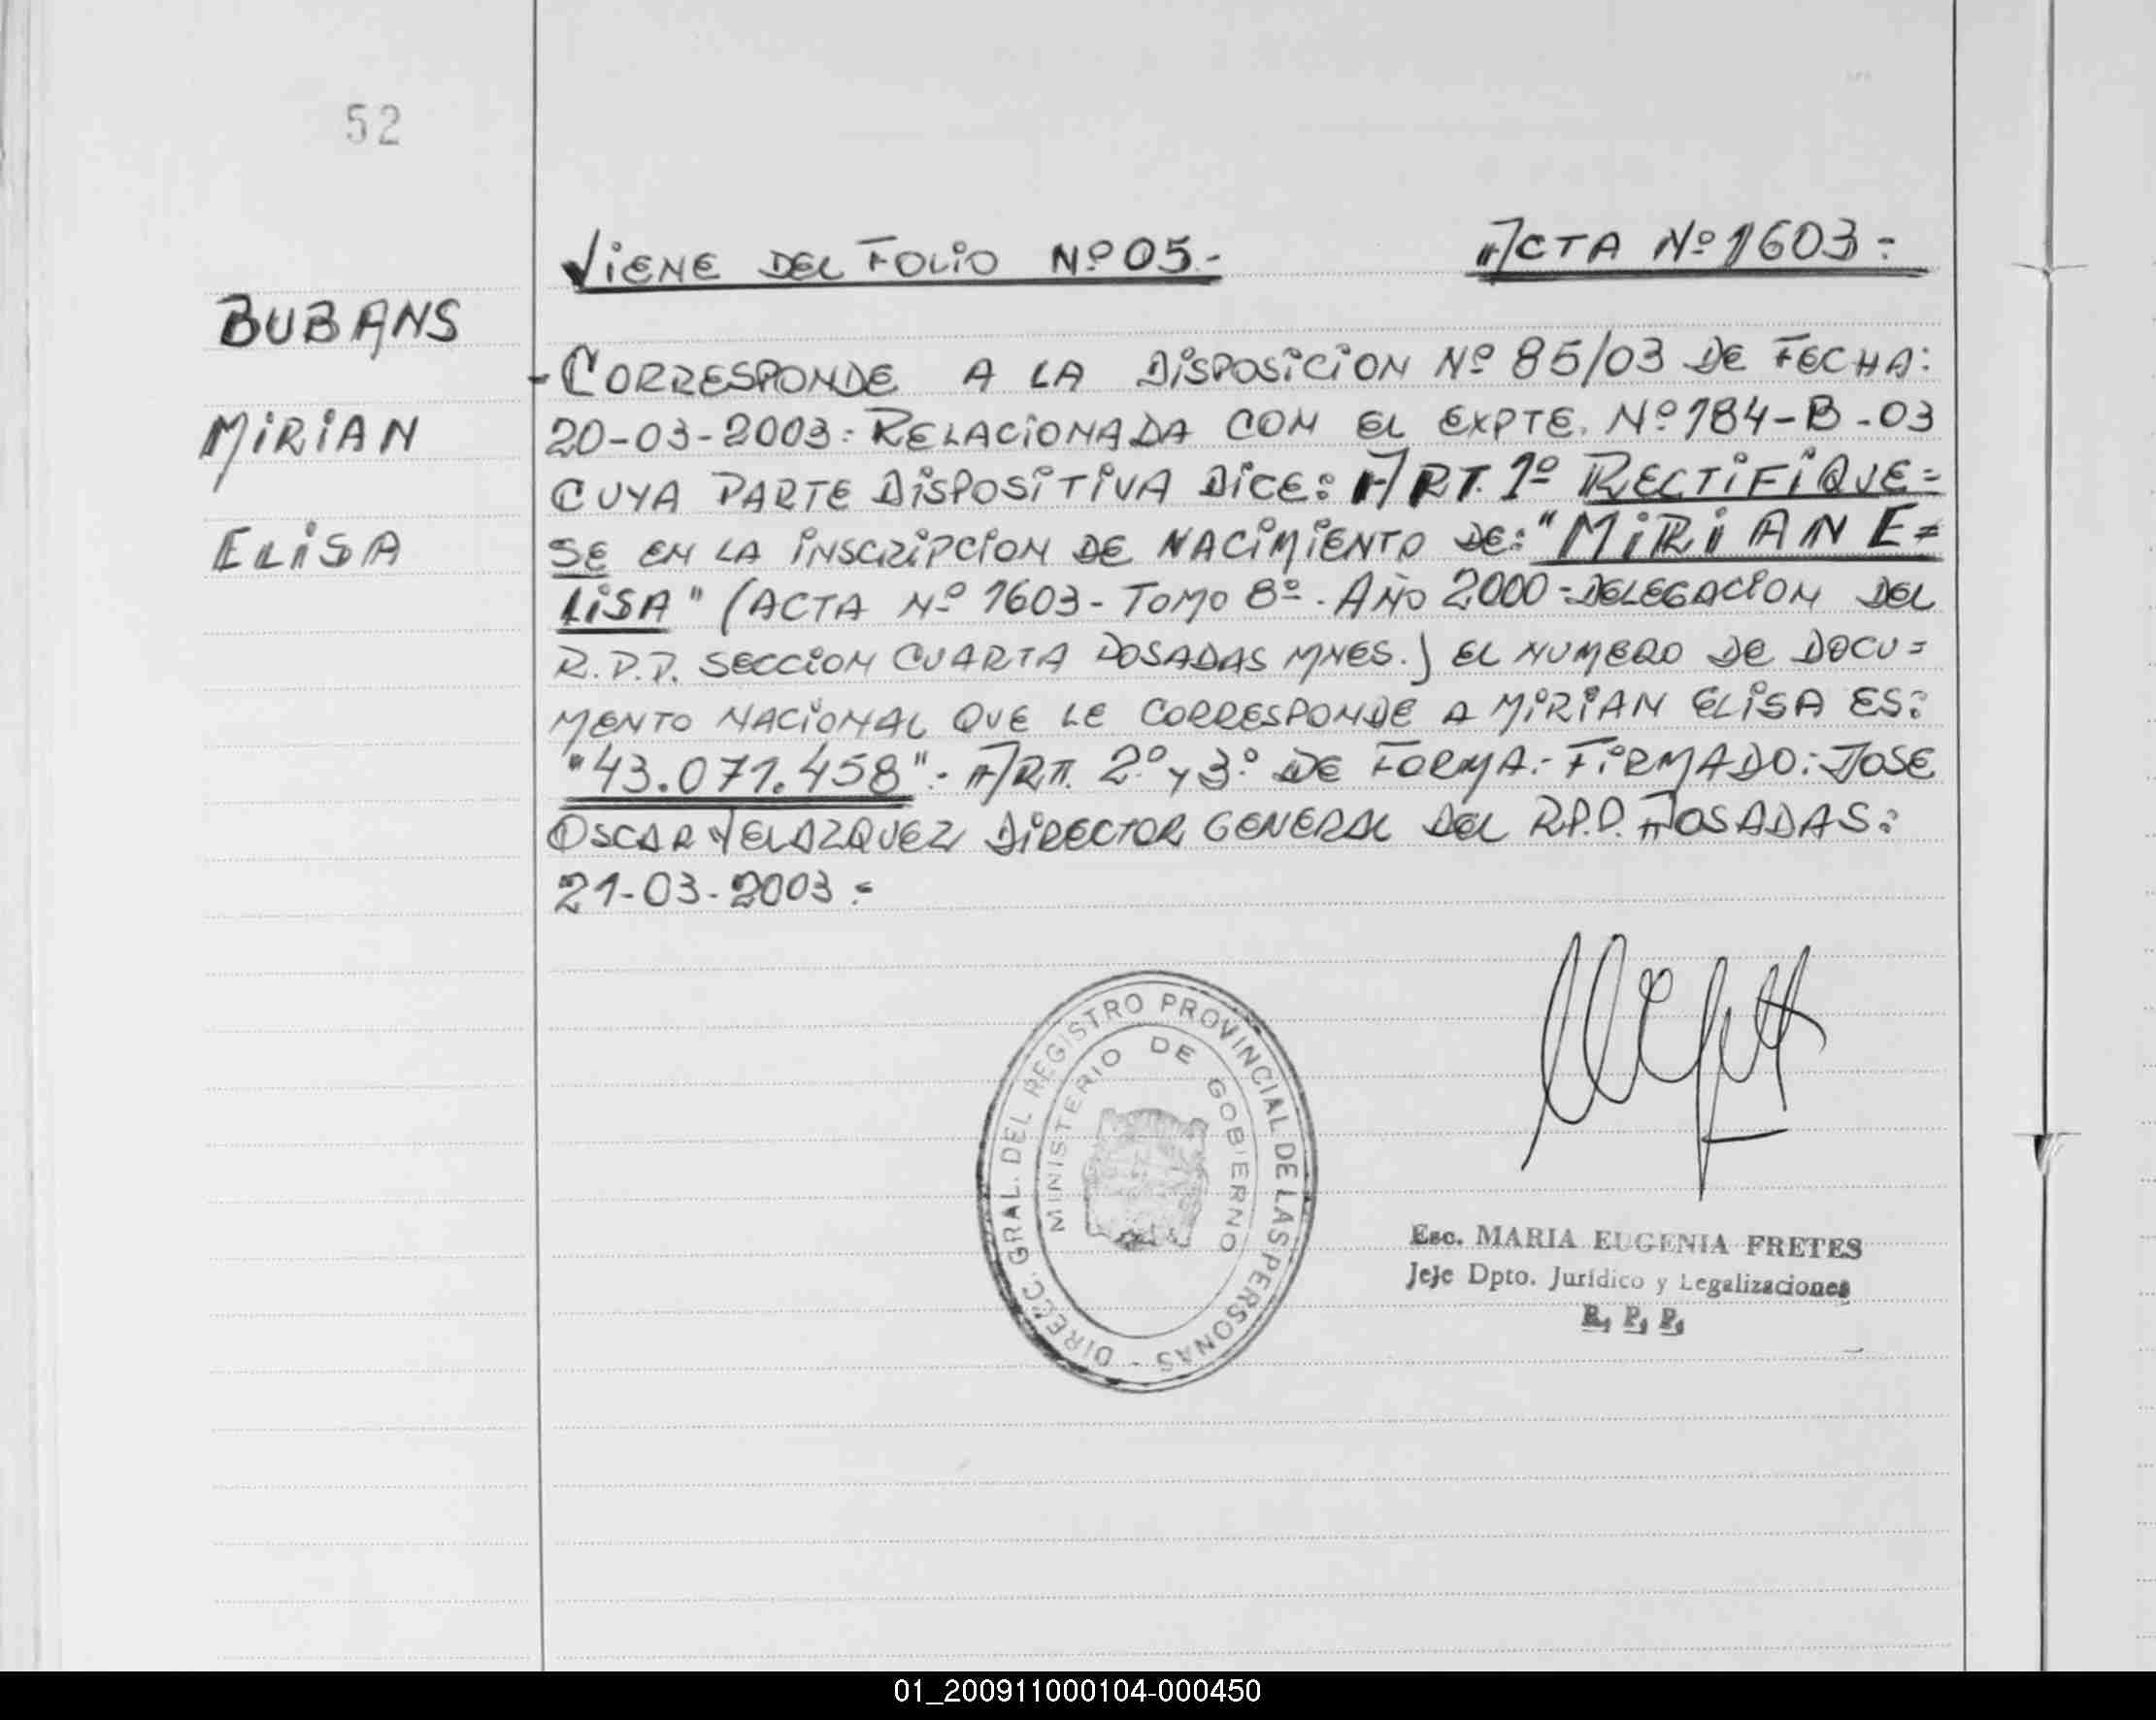 52
VIENE DEL FOLIO Nº 05.-
ACTA Nº 1603=
BUBANS
MIRIAN
ELISA
-CORRESPONDE A LA DISPOSICION Nº 85/03 DE FECHA:
20-03-2003= RELACIONADA CON EL EXPTE. Nº 184-B-03
CUYA PARTE DISPOSITIVA DICE: ART. 1º RECTIFIQUE=
SE EN LA INSCRIPCION DE NACIMIENTO DE: "MIRIAN E=
LISA" (ACTA Nº 1603- TOMO 8º. AÑO 2000-DELEGACION DEL
R.P.P. SECCION CUARTA POSADAS MNES.) EL NUMERO DE DOCU=
MENTO NACIONAL QUE LE CORRESPONDE A MIRIAN ELISA ES:
"43.071.458"- ART. 2º y 3º DE FORMA.- FIRMADO: JOSE
OSCAR VELAZQUEZ DIRECTOR GENERAL DEL R.P.P. POSADAS:
21-03-2003=
DIRECC. GRAL. DEL REGISTRO PROVINCIAL DE LAS PERSONAS -
MINISTERIO DE GOBIERNO
Esc. MARIA EUGENIA FRETES
Jefe Dpto. Jurídico y Legalizaciones
R. P. P.
01_200911000104-000450